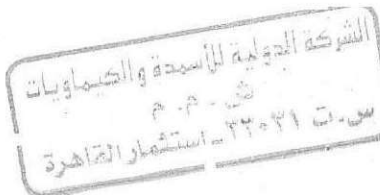 الشركة الدولية للأسمدة والكيماويات
ش. م. م
س. ت ٢٣٠٣١ - استثمار القاهرة